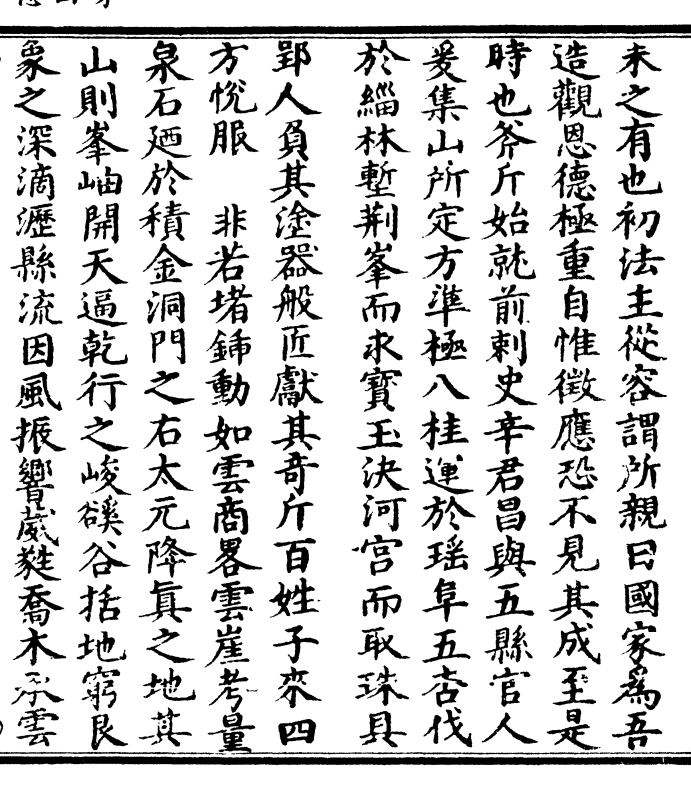 未之有也初法主從容謂所親曰國家為吾
造觀恩德極重自惟徵應恐不見其成至是
時也斧斤始就前刺史辛君昌與五縣官人
爰集山所定方準極八桂運於瑶阜五杏伐
於緇林塹荆峯而求寶玉決河宫而取珠貝
郢人負其塗器般匠獻其竒斤百姓子來四
方悅服 非若堵鍤動如雲商畧雲崖考量
泉石廼於積金洞門之右太元降眞之地其
山則峯岫開天逼乾行之峻谿谷括地窮艮
象之深滴瀝縣流因風振響葳蕤喬木承雲